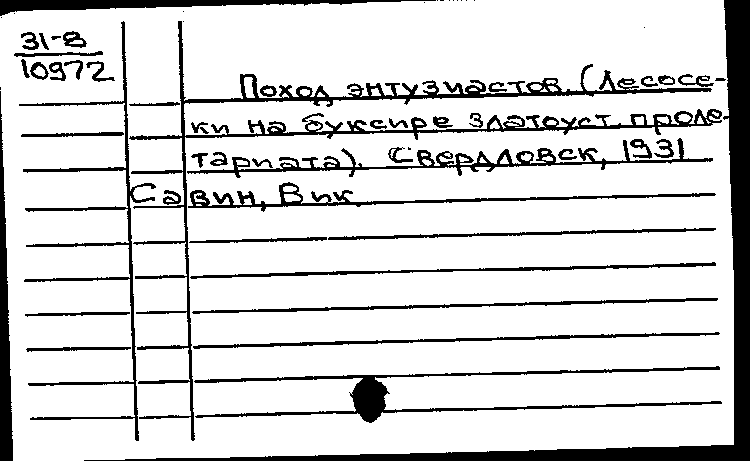 31-8
10972
Поход энтузиастов. (Лесосе-
ки на буксире златоуст. проле-
тариата). Свердловск, 1931
Савин, Вик.